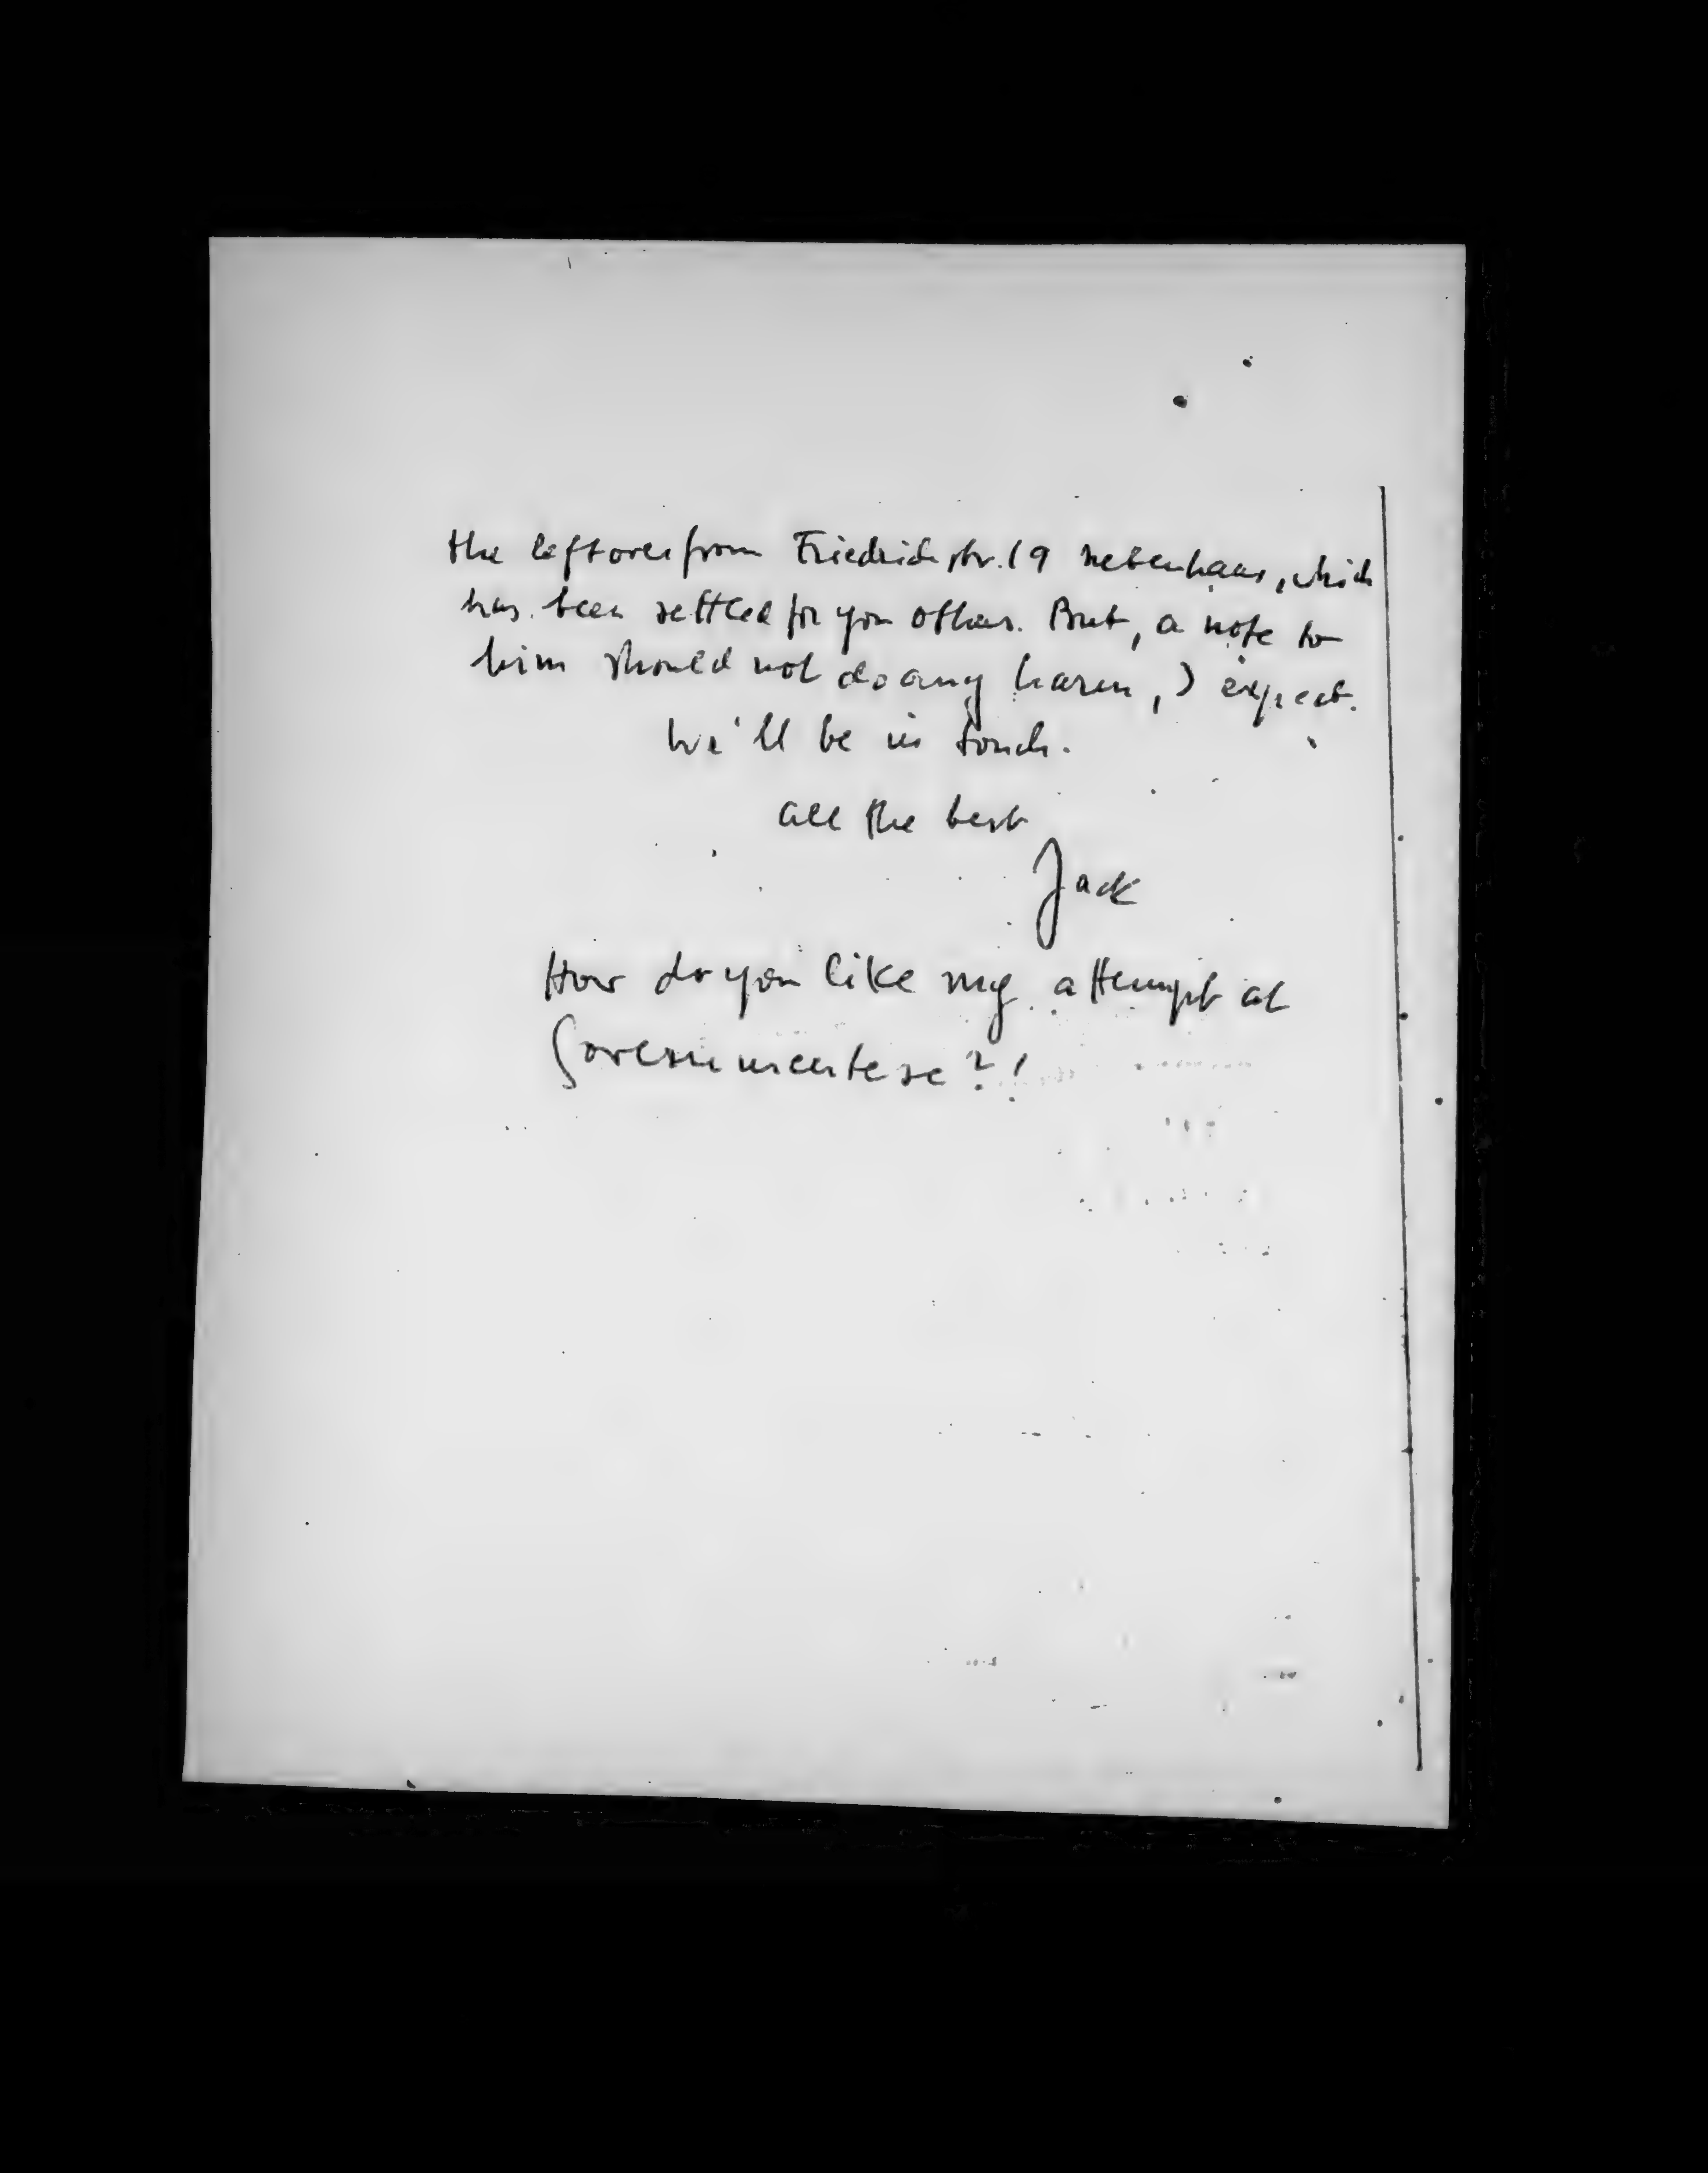 the leftover from Friedrichstr. 19 nebenhaus, which
has been settled for you others. But, a note to
him should not do any harm, I expect.
We'll be in touch.
all the best
Jack
How do you like my attempt at
Governmentese?!